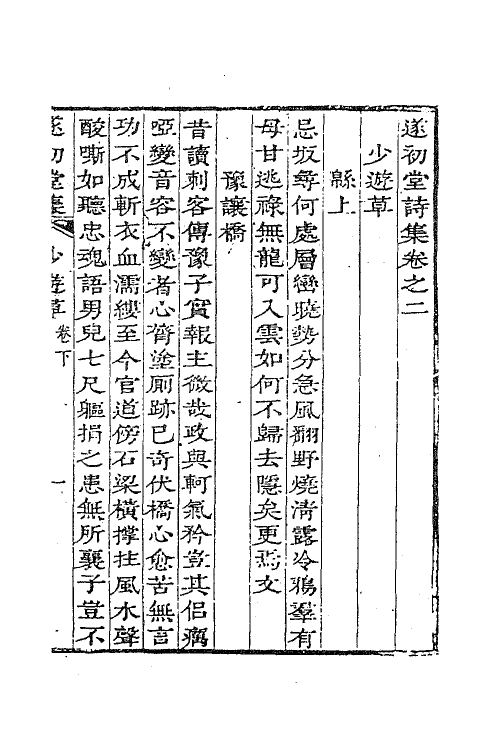 遂初堂詩集卷之二
少遊草
緜上
忌坂尋何處層巒曉勢分急風翻野燒清露冷鴉羣有
母甘逃祿無龍可入雲如何不歸去隱矣更焉文
豫讓橋
昔讀刺客傳豫子實報主微哉政與軻氣矜豈其侶癘
啞變音容不變者心膂塗厠跡已奇伏橋心愈苦無言
功不成斬衣血濡縷至今官道傍石梁橫撐拄風水聲
酸嘶如聽忠魂語男兒七尺軀捐之患無所襄子豈不
遂初堂集 少遊草 卷下 一